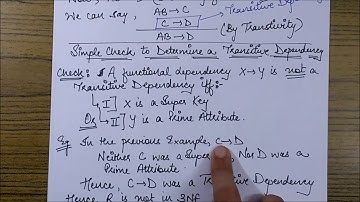 We can say, AB→C Transitive Dependency
C→D
AB→D (By Transitivity)
Simple Check to Determine a Transitive Dependency
Check: A functional dependency X→Y is not a
Transitive Dependency if:-
I] X is a Super Key
Or II] Y is a Prime Attribute.
Eg In the previous Example, C→D
Neither C was a Super Nor D was a
Prime Attribute.
Hence, C→D was a Dependency
Hence R is not in 3NF